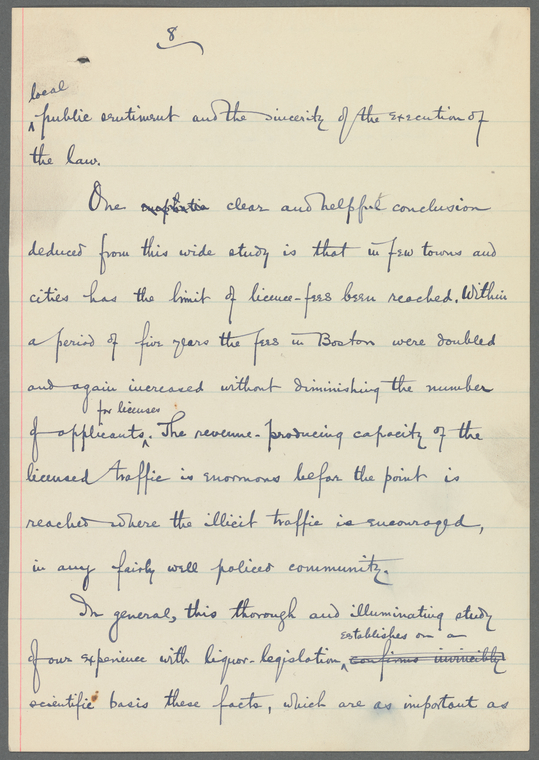 8
local
public sentiment and the sincerity of the execution of
the law.
One clear and helpful conclusion
deduced from this wide study is that in few towns and
cities has the limit of licence-fees been reached. Within
a period of five years the fees in Boston were doubled
and again increased without diminishing the number
for licenses
of applicants. The revenue-producing capacity of the
licensed traffic is enormous befor the point is
reached where the illicit traffic is encouraged,
in any fairly well policed community.
In general, this thorough and illuminating study
establishes on a
of our experience with liquor-legislation, confirms invincibly
scientific basis these facts, which are as important as